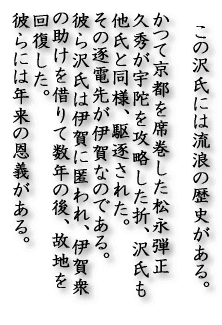 この沢氏には流浪の歴史がある。
かつて京都を席巻した松永弾正
久秀が宇陀を攻略した折、沢氏も
他氏と同様、駆逐された。
その逐電先が伊賀なのである。
彼ら沢氏は伊賀に匿われ、伊賀衆
の助けを借りて数年の後、故地を
回復した。
彼らには年来の恩義がある。